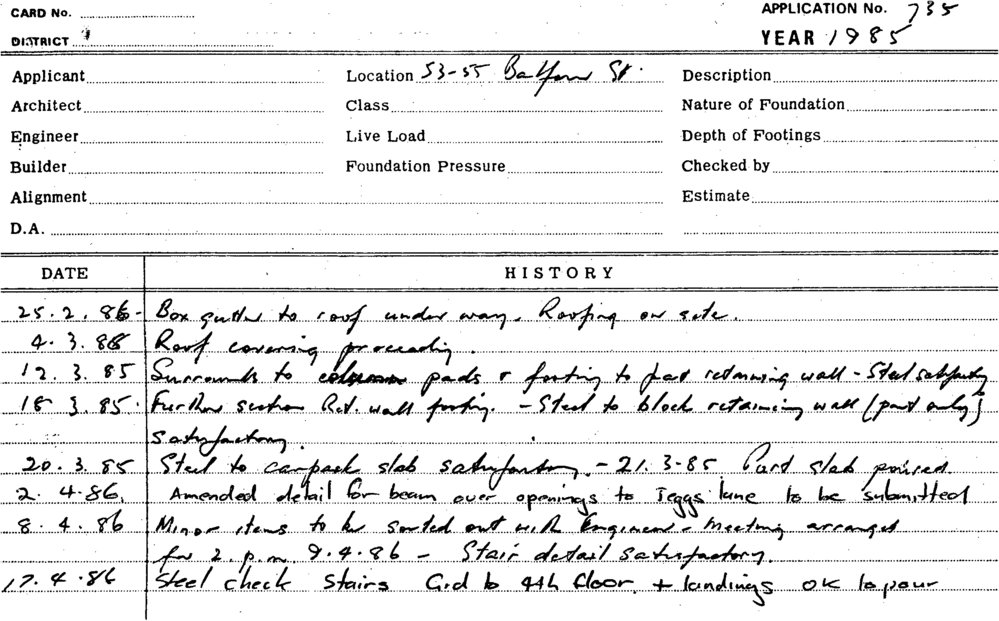 CARD No.
APPLICATION No. 735
DISTRICT
YEAR 1985
Applicant
Location 53-55 Balfour St.
Description
Architect
Class
Nature of Foundation
Engineer
Live Load
Depth of Footings
Builder
Foundation Pressure
Checked by
Alignment
Estimate
D.A.
DATE HISTORY
25.2.86 - Box gutter to roof under way. Roofing on site.
4.3.86 Roof covering proceeding.
12.3.85 Surrounds to column pads & footing to part retaining wall - Steel satisfactory
18.3.85. Further section Ret. wall footing. - Steel to block retaining wall (part only)
satisfactory.
20.3.85 Steel to carpark slab satisfactory. - 21.3-85 Part slab poured
2.4.86. Amended detail for beam over openings to Jeggs lane to be submitted
8.4.86 Minor items to be sorted out with Engineer - Meeting arranged
for 2.p.m. 9.4.86 - Stair detail satisfactory.
17.4.86 Steel check stairs Grd to 4th floor. + landings OK to pour